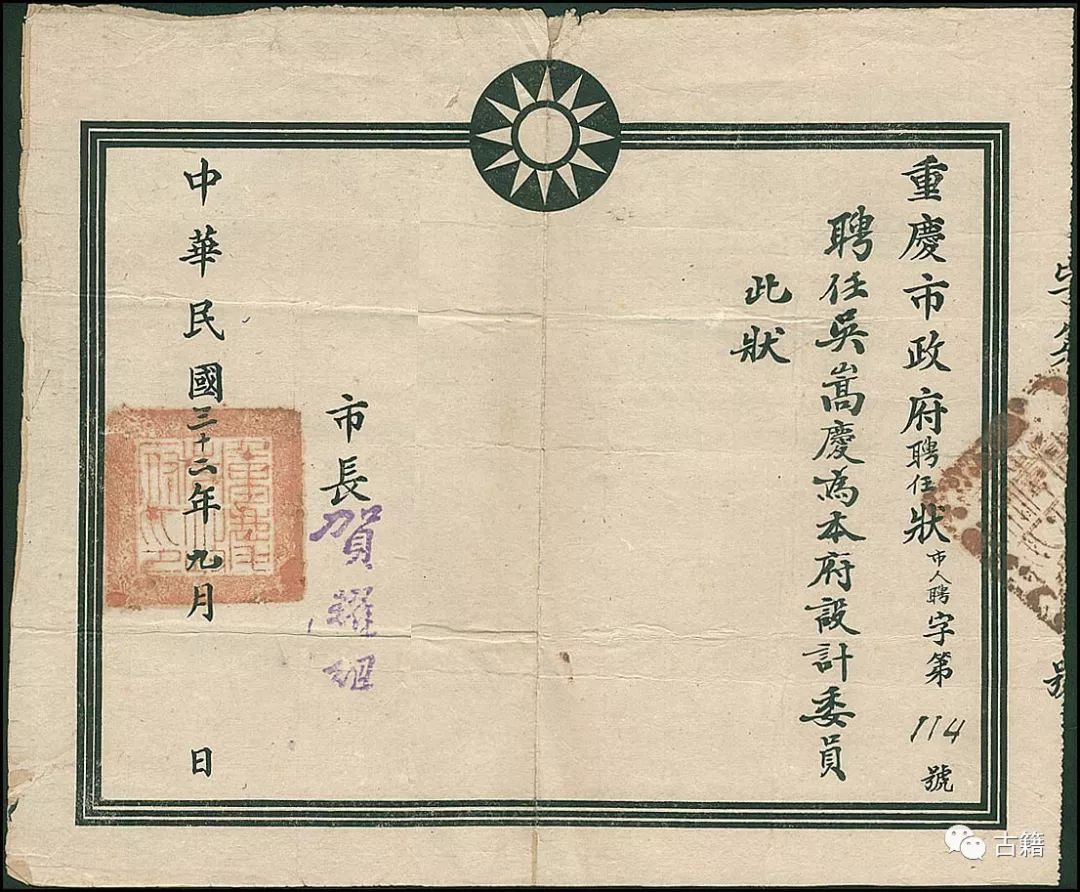 重慶市政府聘任狀 市人聘字第114號
聘任吳嵩慶為本府設計委員
此狀
市長賀耀組
中華民國三十二年九月 日
號
古籍